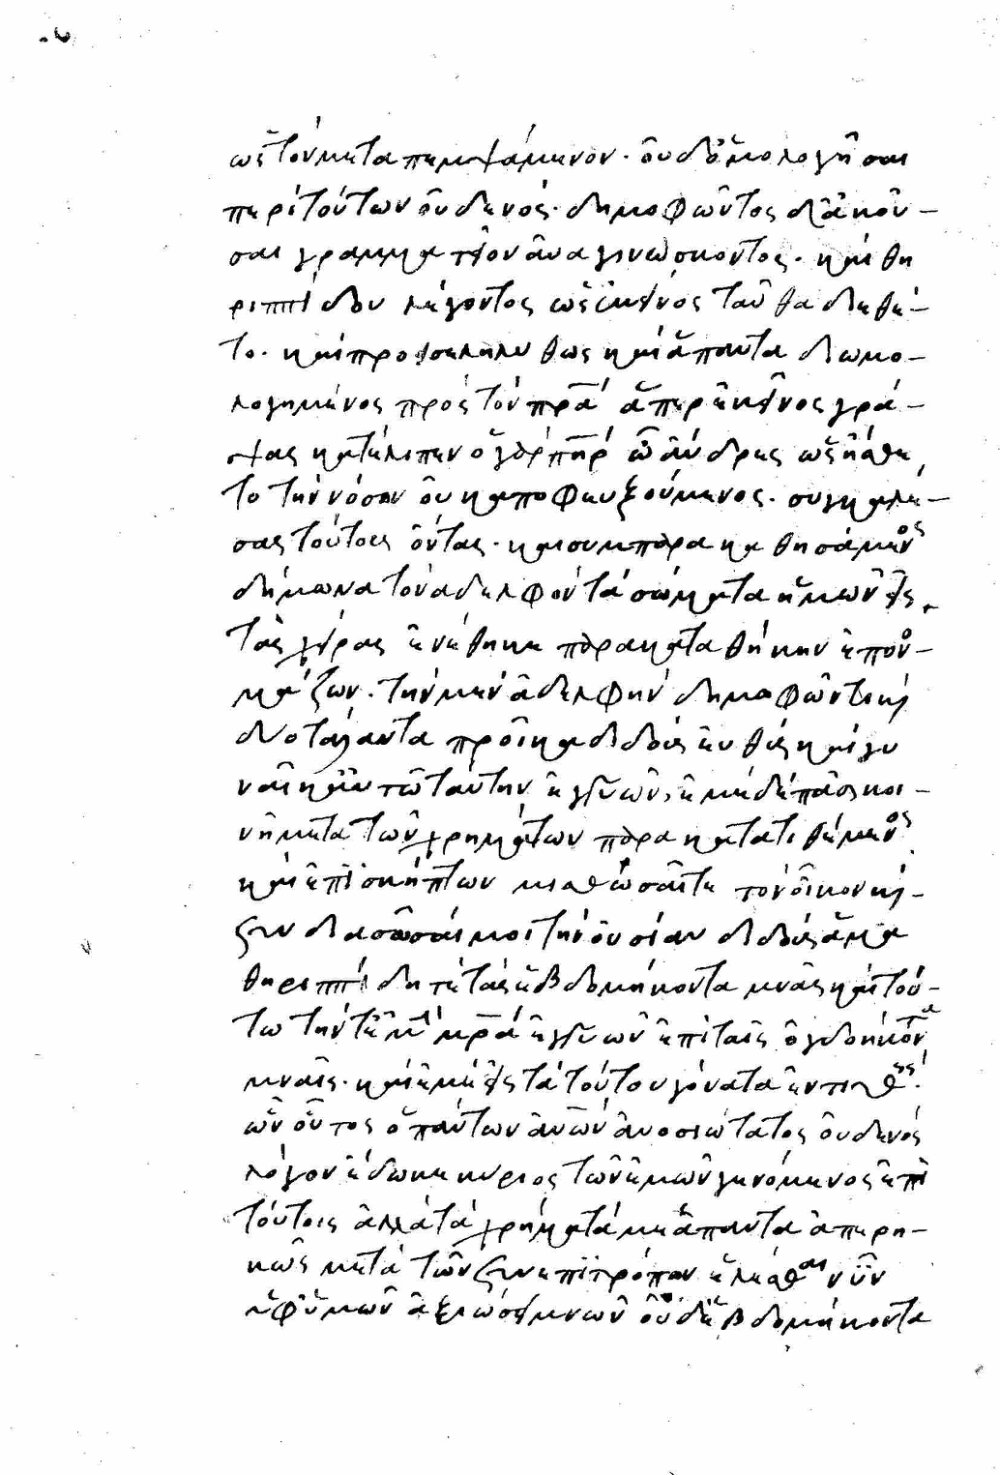 ὡς τὸν μεταπεμψάμενον· οὐδ' ὁμολογῆσαι
περὶ τούτων οὐδενός· δημοφῶντος δ' ἀκοῦ-
σαι γραμματεῖον ἀναγινώσκοντος· καὶ θη
ριππίδου λέγοντος ὡς ἐκεῖνος ταῦθα διεθέ-
το· καὶ προσεληλυθὼς καὶ ἅπαντα διωμο-
λογημένος πρὸς τὸν πρα ἅπερ ἐκεῖνος γρά-
ψας κατέλιπεν ὁ γὰρ πηρ ὦ ἄνδρες ὡς ᾔσθε
το τὴν νόσον οὐκ ἀποφευξούμενος· συγκαλέ-
σας τούτοις ὄντας· καὶ συμπαρακαθησάμενος
δήμωνα τὸν ἀδελφὸν τὰ σώματα ἡμῶν εἰς
τὰς χεῖρας ἐνέθηκε παρακαταθήκην ἐπονο-
μάζων· τὴν μὲν ἀδελφὴν δημοφῶντι καὶ
δύο τάλαντα προῖκα διδοὺς εὐθὺς καὶ γυ
ναῖκα αὐτῶ ταύτην ἐγγυῶν, ἐμὲ δὲ πᾶσι κοι-
νῆ μετὰ τῶν χρημάτων παρακατατιθέμενος
καὶ ἐπισκήπτων μισθῶσαί τε τὸν οἶκον καὶ
συνδιασῶσαί μοι τὴν οὐσίαν διδοὺς ἅμα
θηριππίδη τε τὰς ἑβδομήκοντα μνᾶς καὶ τού-
τω τήν τε ἐμὴν μρα ἐγγυῶν ἐπὶ ταῖς ὀγδοήκοντα
μναῖς· καὶ ἐμὲ εἰς τὰ τούτου γόνατα ἐντιθείς·
ὧν οὗτος ὁ πάντων ἀνων ἀνοσιώτατος οὐδενὸς
λόγον ἔδωκε κύριος τῶν ἐμῶν γενόμενος ἐπὶ
τούτοις ἀλλὰ τὰ χρήματά με ἅπαντα ἀπεστερη-
κὼς μετὰ τῶν συνεπιτρόπων ἐλεεῖσθαι νῦν
ὑφ' ὑμῶν ἀξιώσει μνῶν οὐδ' ἑβδομήκοντα